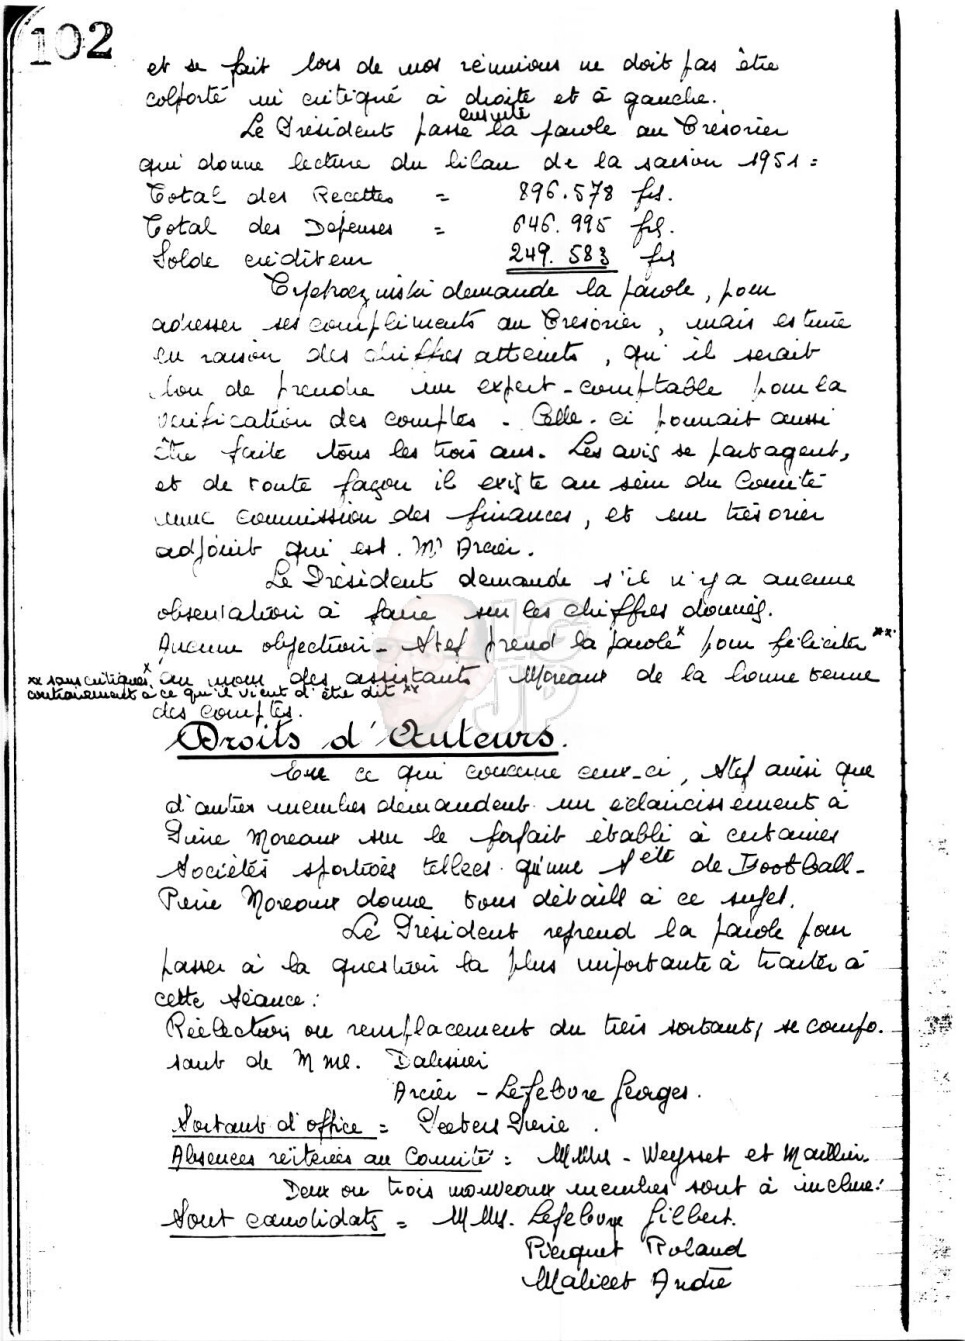 102
et se fait lors de nos réunions ne doit pas être
colporté ni critiqué à droite et à gauche.
Le Président passe ensuite la parole au Trésorier
qui donne lecture du bilan de la saison 1951 =
Total des Recettes = 896.578 frs.
Total des Dépenses = 646.995 frs.
Solde créditeur 249.583 frs
demande la parole, pour
adresser ses compliments au Trésorier, mais estime
en raison des chiffres atteints, qu'il serait
bon de prendre un expert-comptable pour la
vérification des comptes. Celle-ci pourrait aussi
être faite tous les trois ans. Les avis se partagent,
et de toute façon il existe au sein du Comité
une commission des finances, et un trésorier
adjoint qui est Mr Arcier.
Le Président demande s'il n'y a aucune
observation à faire sur les chiffres donnés.
Aucune objection - Stef prend la parole x pour féliciter xx
xx sans critiques x au nom des assistants Moreaux de la bonne tenue
contrairement à ce qu'il vient d'être dit xx
des comptes.
Droits d'Auteurs.
En ce qui concerne ceux-ci, Stef ainsi que
d'autres membres demandent un éclaircissement à
Pierre Moreaux sur le forfait établi à certaines
Sociétés sportives telles qu'une Sété de Football -
Pierre Moreaux donne tous détails à ce sujet.
Le Président reprend la parole pour
passer à la question la plus importante à traiter à
cette séance :
Réélection ou remplacement du tiers sortant, se compo-
sant de M me. Dalmier
Arcier - Lefebvre Georges.
Sortant d'office = Peeters Pierre.
Absences réitérées au Comité : MMrs - Weysset et Maillier.
Deux ou trois nouveaux membres sont à inclure :
Sont candidats = MMrs. Lefebvre Gilbert.
Pierquet Roland
Malicet André